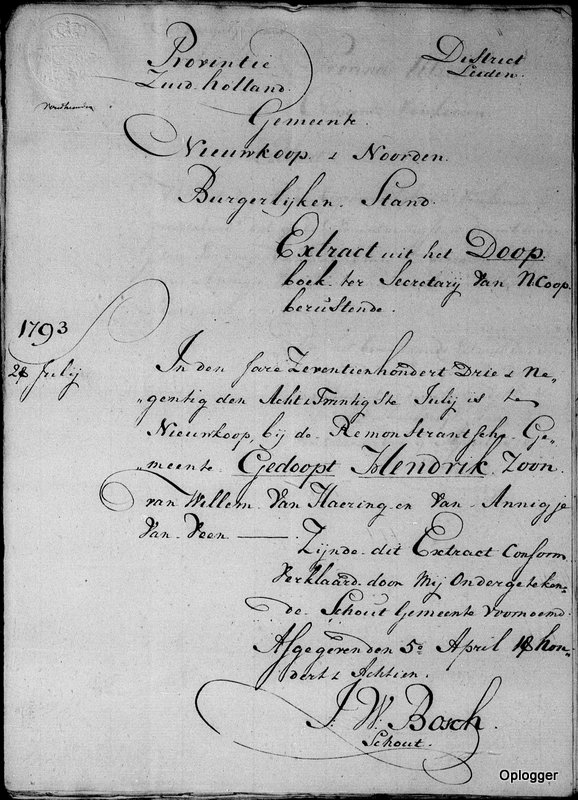 Proventie
Zuid-holland.
District
Leiden.
Gemeente.
Nieuwkoop & Noorden.
Burgerlijken Stand.
Extract uit het Doop
boek ter Secretarij Van NCoop.
berustende.
1793
28 Julij
In den jare Zeventienhondert Drie & Ne„
„gentig den Acht & Twintig Ste Julij is te
Nieuwkoop, bij de Remonstrantsche Ge„
„meente. Gedoopt Hendrik. Zoon.
van Willem Van Haering en Van Annigje
Van Veen —— Zijnde dit Extract Conform
Verklaard door Mij Ondergeteken„
„de Schout Gemeente Voornoemd.
Afgegeven den 5e April 18 hon„
„dert & Achtien.
J. W. Bosch.
Schout.
Oplogger